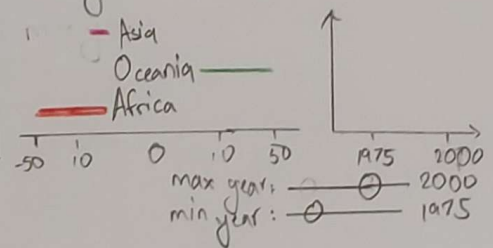 Asia
Oceania
Africa
-50 10 0 10 50
1975 2000
max year: 2000
min year: 1975